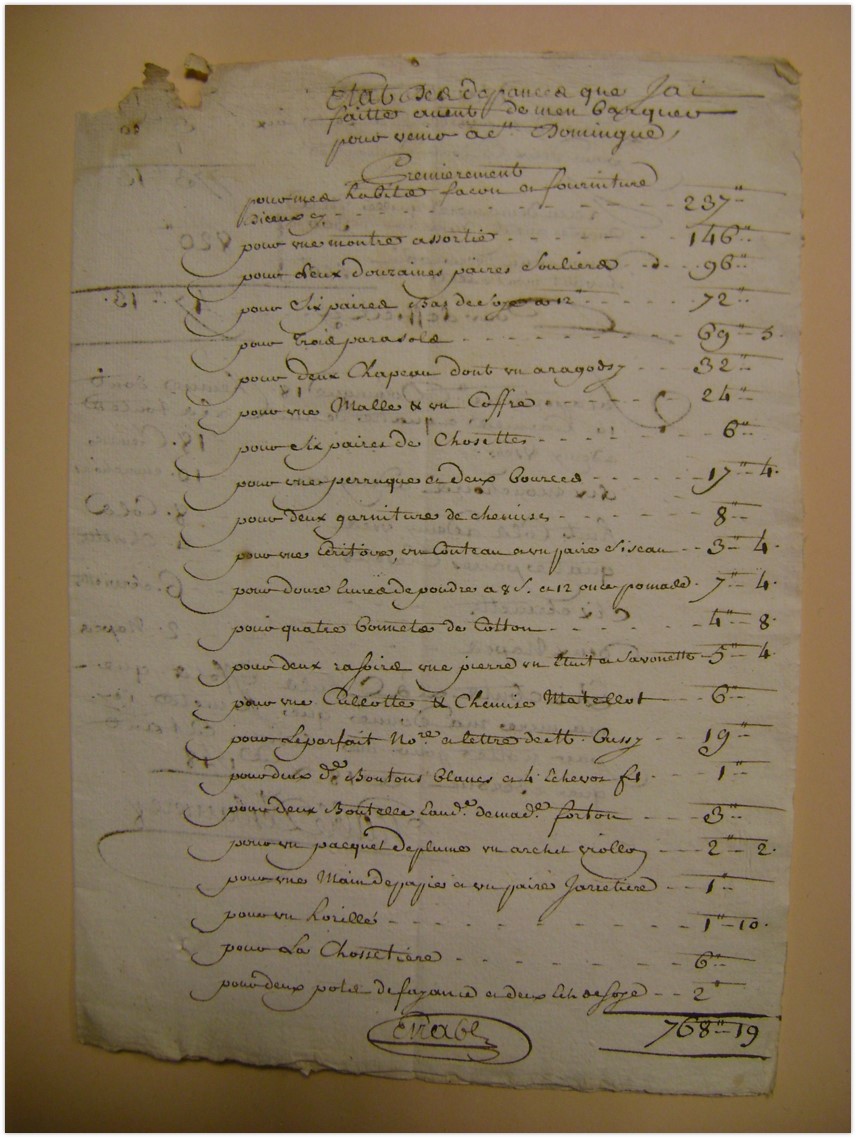 Etat des depances que Jai
faittes avent de men barquer
pour venir a St Domingue
Premierement
pour mes habits facon et fourniture
diceux cy - - - 237"
pour une montre assortie - - - 146"
pour deux douzaines paires souliers - - 96"
pour six paires Bas de soye a 12" - - 72"
pour trois parasols - - - 69" 5
pour deux Chapeau dont un - - 32"
pour une Malle & un Coffre - - - 24"
pour six paires de Chosettes - - - 6"
pour une perruque et deux bources - - - 17" 4
pour deux garniture de chemises - - - 8"
pour une Ecritoire, un Couteau a un paire Siseau - - 3" 4
pour douze livres de poudre a 8 S. et 12 once pomade - 7" 4
pour quatre bonnets de Cotton - - - 4" 8
pour deux rasoirs une pierre un Etuit et Savonette - 5" 4
pour une Cullotte & Chemise Matellot - - 6"
pour Le parfait No.re et lettre de Bussy - - 19"
pour deux d.e Boutons blancs et 4 - - 1"
pour deux Boutelle Eaud.e de mad.e forton - - 3"
pour un pacquet de plume un archet viollon - - 2" 2
pour une Main de papié et un paire Jarretiere - - 1"
pour un - - - 1" 10
pour La Chossetiere - - - 6"
pour deux pots de fayance et deux de soye - - 2"
768" 19